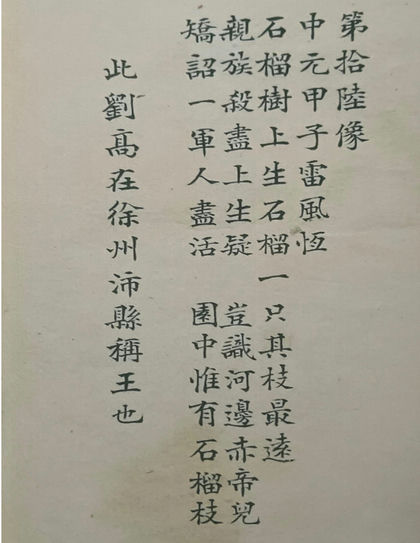 第拾陸像
中元甲子雷風恆
石榴樹上生石榴一只其枝最遠
親族殺盡上生疑 豈識河邊赤帝兒
矯詔一軍人盡活 園中惟有石榴枝
此劉髙在徐州沛縣稱王也